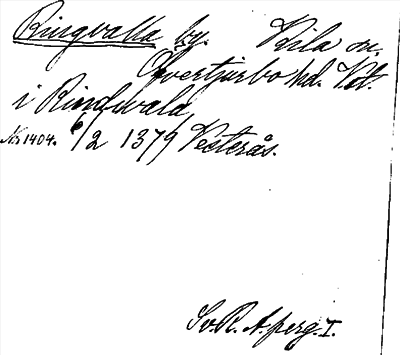 Ringvalla by. Kila sn.
Övertjurbo hd. Vstm.
i Rindwala
No 1404. 6/2 1379 Västerås.
Sv. R. A. perg. I.